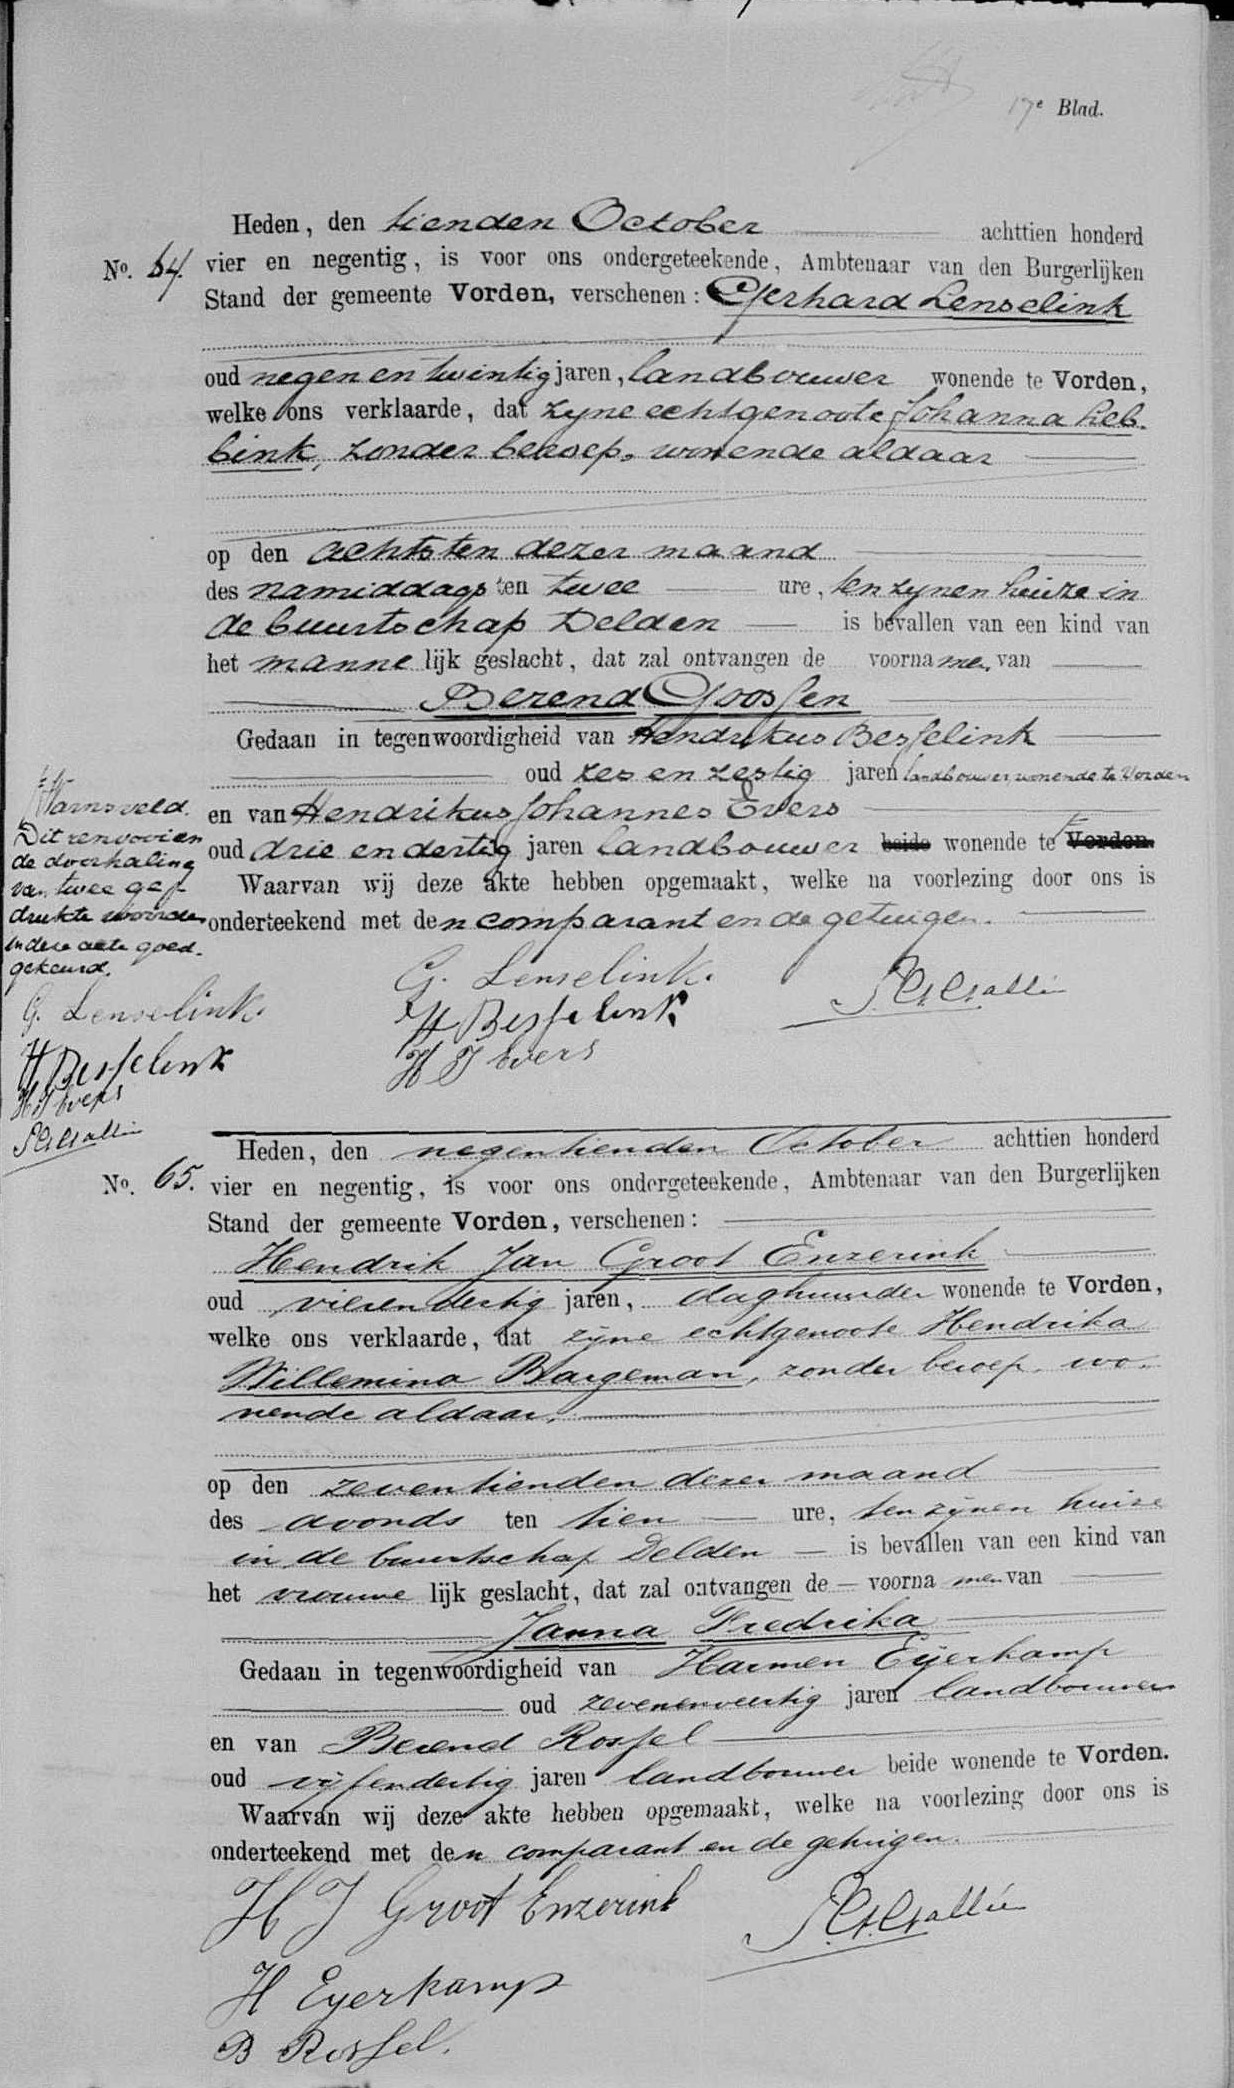 17e Blad.
Heden, den tienden October achttien honderd
No. 64. vier en negentig, is voor ons ondergeteekende, Ambtenaar van den Burgerlijken
Stand der gemeente Vorden, verschenen: Gerhard Lenselink
oud negen en twintig jaren, landbouwer wonende te Vorden,
welke ons verklaarde, dat zyne echtgenoote Johanna Heb-
bink, zonder beroep, wonende aldaar
op den achtsten dezer maand
des namiddags ten twee ure, ten zynen huize in
de buurtschap Delden is bevallen van een kind van
het mannelijk geslacht, dat zal ontvangen de voornamen van
Berend Goossen
Gedaan in tegenwoordigheid van Hendrikus Besselink
oud zes en zestig jaren landbouwer, wonende te Vorden
en van Hendrikus Johannes Evers
oud drie en dertig jaren landbouwer beide wonende te Vorden.
Waarvan wij deze akte hebben opgemaakt, welke na voorlezing door ons is
onderteekend met den comparant en de getuigen.
Warnsveld.
Dit renvooi en
de doorhaling
van twee ge-
drukte woorden
in deze acte goed-
gekeurd.
G. Lenselink.
H Besselink
HJ Evers
G. Lenselink.
H Besselink
H J Evers
Gallée
Gallée
Heden, den negentienden October achttien honderd
No. 65. vier en negentig, is voor ons ondergeteekende, Ambtenaar van den Burgerlijken
Stand der gemeente Vorden, verschenen:
Hendrik Jan Groot Enzerink
oud vierendertig jaren, daghuurder wonende te Vorden,
welke ons verklaarde, dat zijne echtgenoote Hendrika
Willemina Bargeman, zonder beroep, wo-
nende aldaar,
op den zeventienden dezer maand
des avonds ten tien ure, ten zijnen huize
in de buurtschap Delden is bevallen van een kind van
het vrouwelijk geslacht, dat zal ontvangen de voornamen van
Janna Fredrika
Gedaan in tegenwoordigheid van Harmen Eijerkamp
oud zevenenveertig jaren landbouwer
en van Berend Rossel
oud vijfendertig jaren landbouwer beide wonende te Vorden.
Waarvan wij deze akte hebben opgemaakt, welke na voorlezing door ons is
onderteekend met den comparant en de getuigen.
H J Groot Enzerink
Gallée
H Eyerkamp
B Rossel.